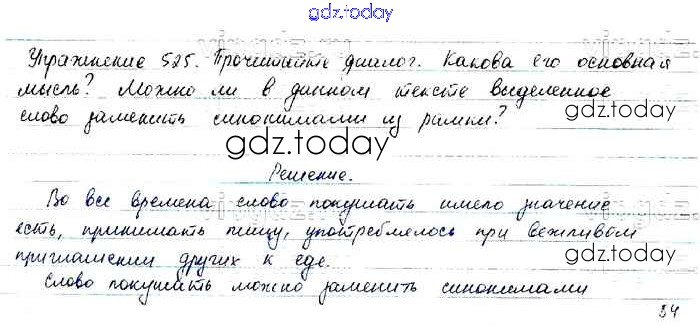 gdz.today
Упражнение 525. Прочитайте диалог. Какова его основная
мысль? Можно ли в данном тексте выделенное
слово заменить синонимами из рамки?
gdz.today
gdz.today
Решение.
Во все времена слово покушать имело значение
есть, принимать пищу, употреблялось при вежливом
приглашении других к еде.
gdz.today
Слово покушать можно заменить синонимами
gdz.today
34